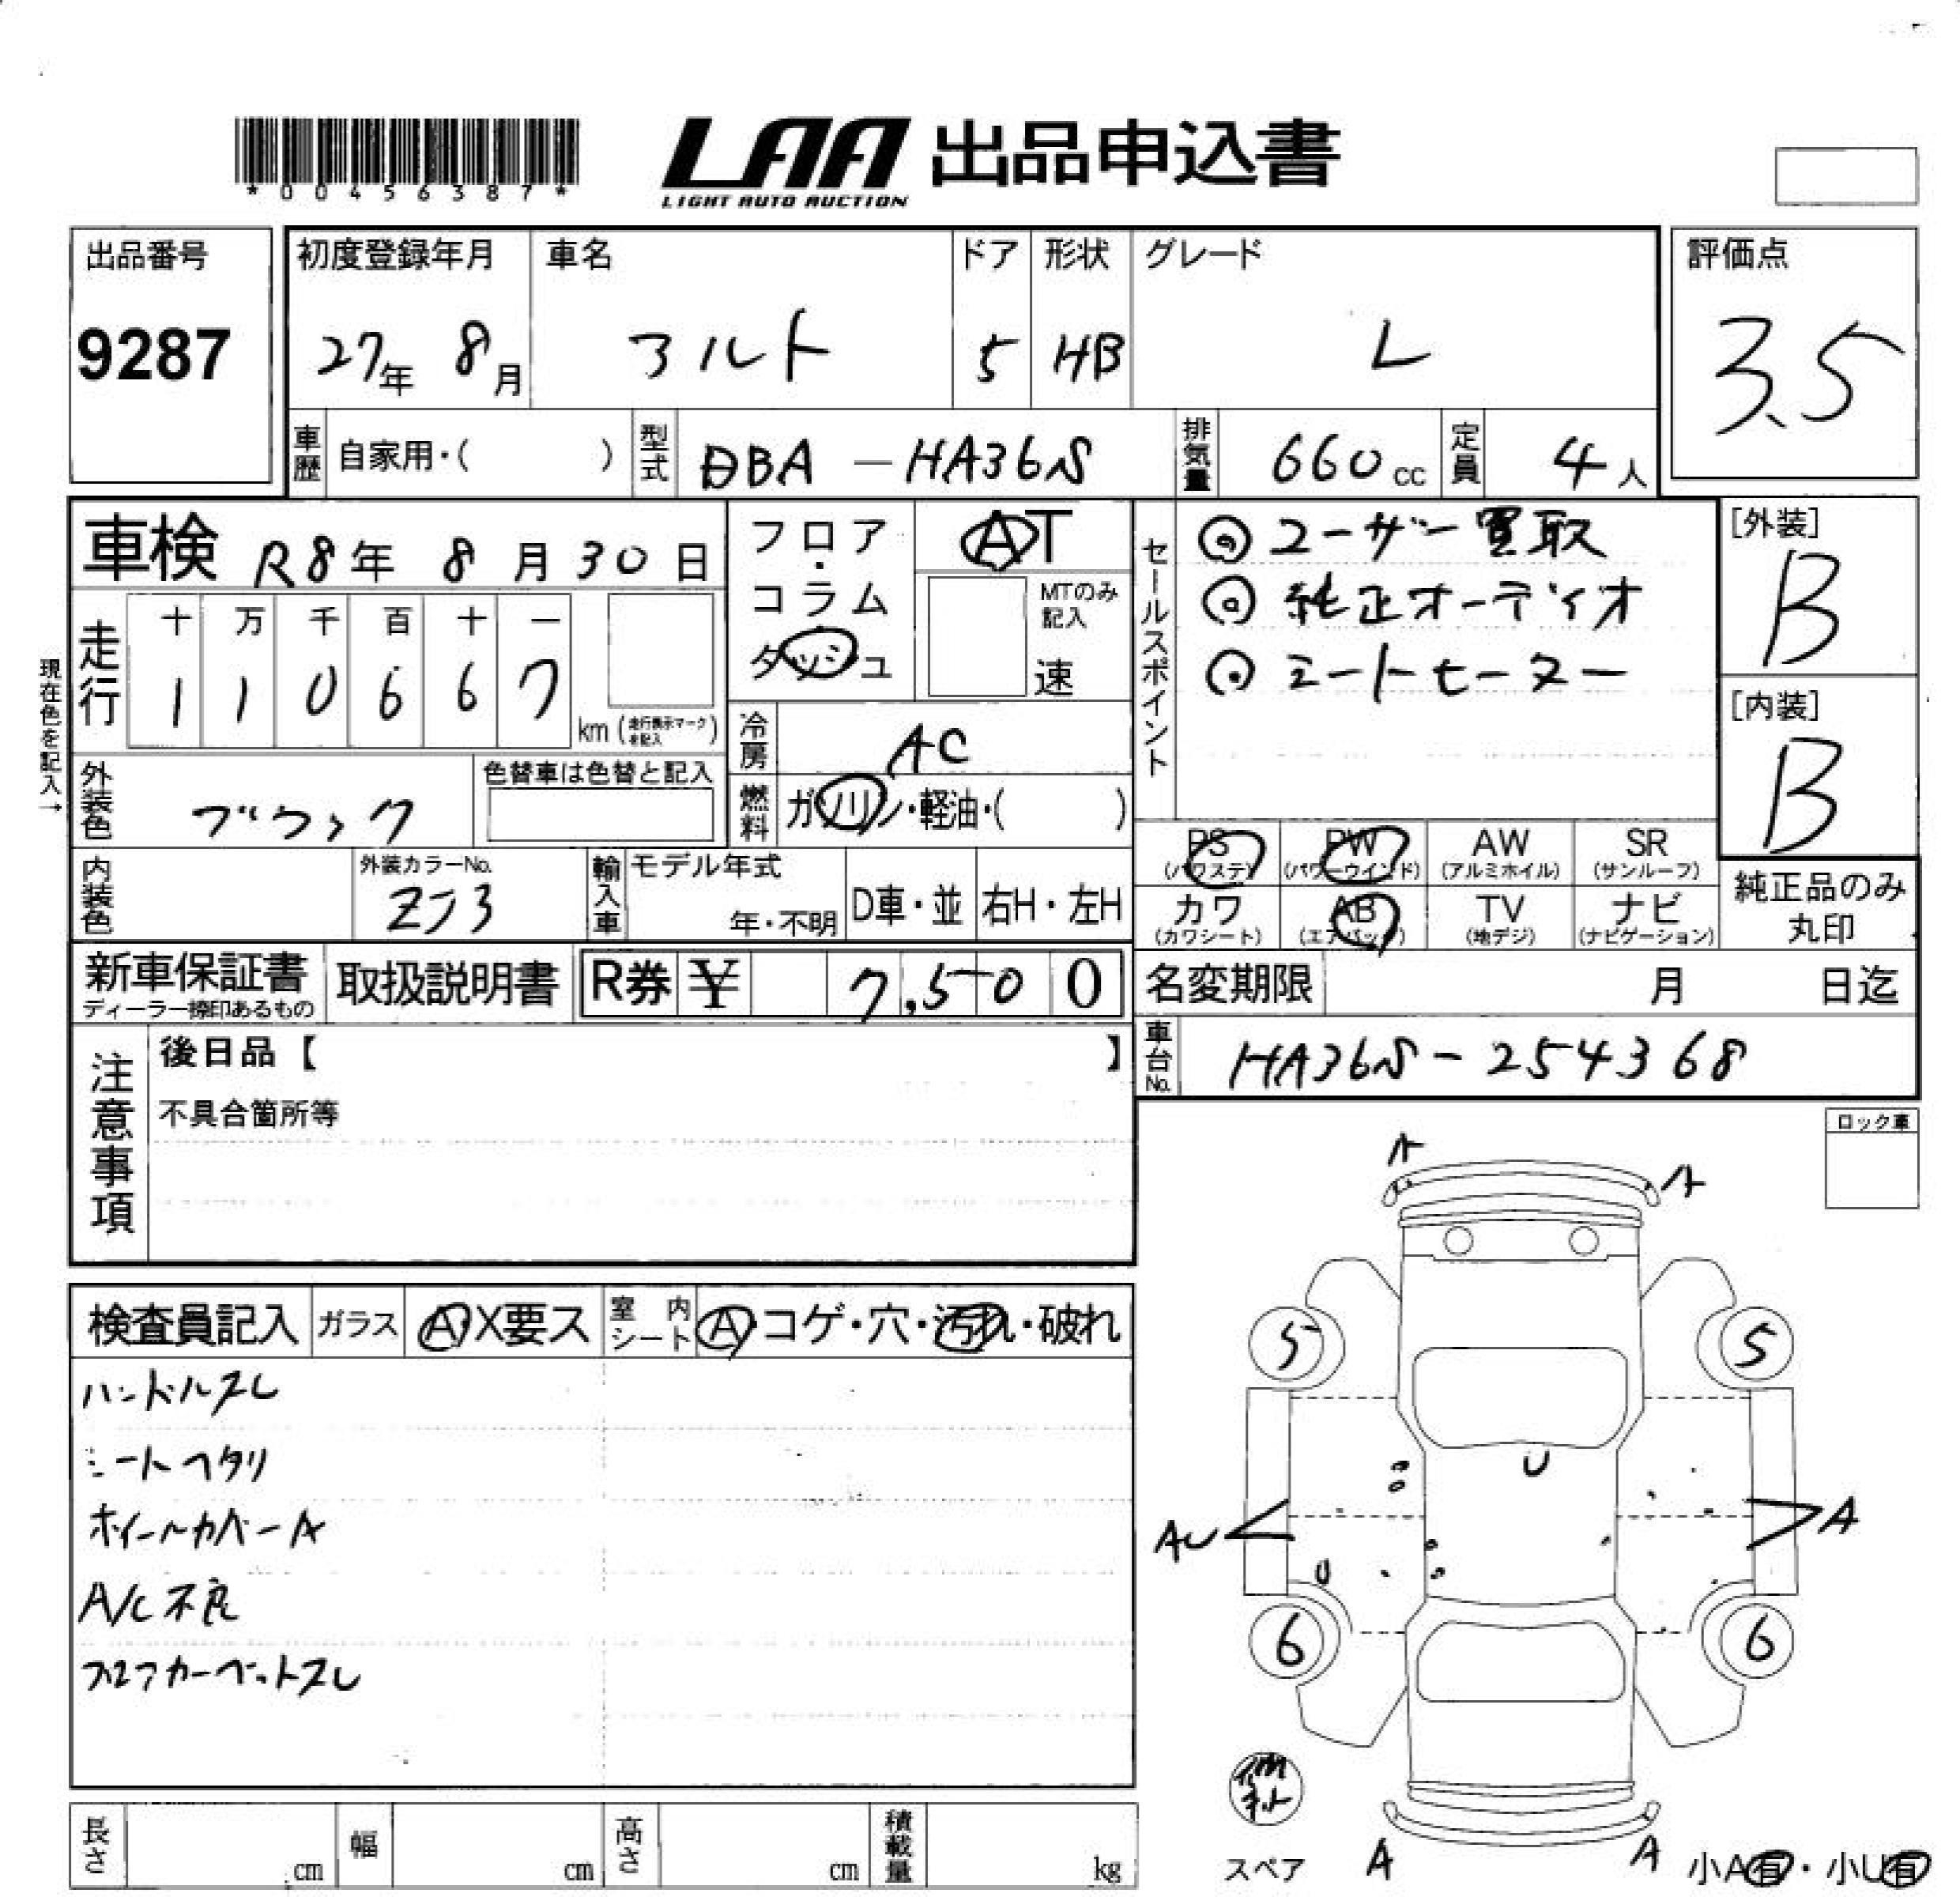 *00456387*
LAA 出品申込書
LIGHT AUTO AUCTION
出品番号
9287
初度登録年月
27年 8月
車名
アルト
ドア
5
形状
HB
グレード
L
評価点
3.5
車歴 自家用・( )
型式 DBA-HA36S
排気量 660cc
定員 4人
車検 R8年 8月30日
走行
十 万 千 百 十 一
1 1 0 6 6 7
km (走行表示マーク を記入)
現在色を記入→
フロア・
コラム・
ダッシュ
AT
MTのみ
記入
速
冷房 AC
燃料 ガソリン・軽油・( )
外装色 ブラック
色替車は色替と記入
内装色
外装カラーNo.
ZJ3
輸入車
モデル年式
年・不明
D車・並
右H・左H
セールスポイント
◎ユーザー買取
◎純正オーディオ
◎シートヒーター
[外装]
B
[内装]
B
PS
(パワステ)
PW
(パワーウインド)
AW
(アルミホイル)
SR
(サンルーフ)
カワ
(カワシート)
AB
(エアバッグ)
TV
(地デジ)
ナビ
(ナビゲーション)
純正品のみ
丸印
新車保証書
ディーラー捺印あるもの
取扱説明書
R券 ¥ 7,500
名変期限 月 日迄
車台No. HA36S-254368
注意事項
後日品【 】
不具合箇所等
ロック車
検査員記入
ガラス A・X要ス
室内シート A・コゲ・穴・汚れ・破れ
ハンドルスレ
シートヘタリ
ホイールカバーA
A/C不良
フロアカーペットスレ
A
A
5
5
U
AU
A
U
6
6
スペア
A
A
小A有・小U有
長さ cm
幅 cm
高さ cm
積載量 kg